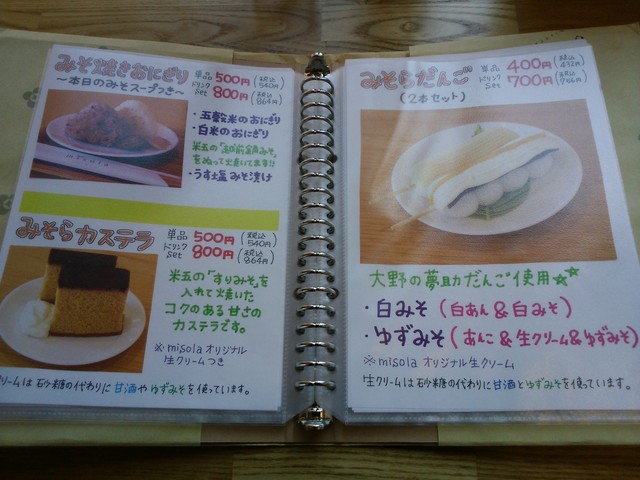 みそ焼きおにぎり
～本日のみそスープつき～
単品 500円 (税込540円)
ドリンクset 800円 (税込864円)
・五穀米のおにぎり
・白米のおにぎり
米五の「越前銀みそ」
をぬって焼いてます!!
・うす塩みそ漬け
みそらカステラ
単品 500円 (税込540円)
ドリンクset 800円 (税込864円)
米五の「すりみそ」を
入れて焼いた
コクのある甘さの
カステラです。
※misolaオリジナル
生クリームつき
クリームは砂糖の代わりに甘酒やゆずみそを使っています。
みそらだんご
(2本セット)
単品 400円 (税込432円)
ドリンクset 700円 (税込756円)
大野の夢助だんご使用☆☆
・白みそ(白あん&白みそ)
・ゆずみそ(あんこ&生クリーム&ゆずみそ)
※misolaオリジナル生クリーム
生クリームは砂糖の代わりに甘酒とゆずみそを使っています。